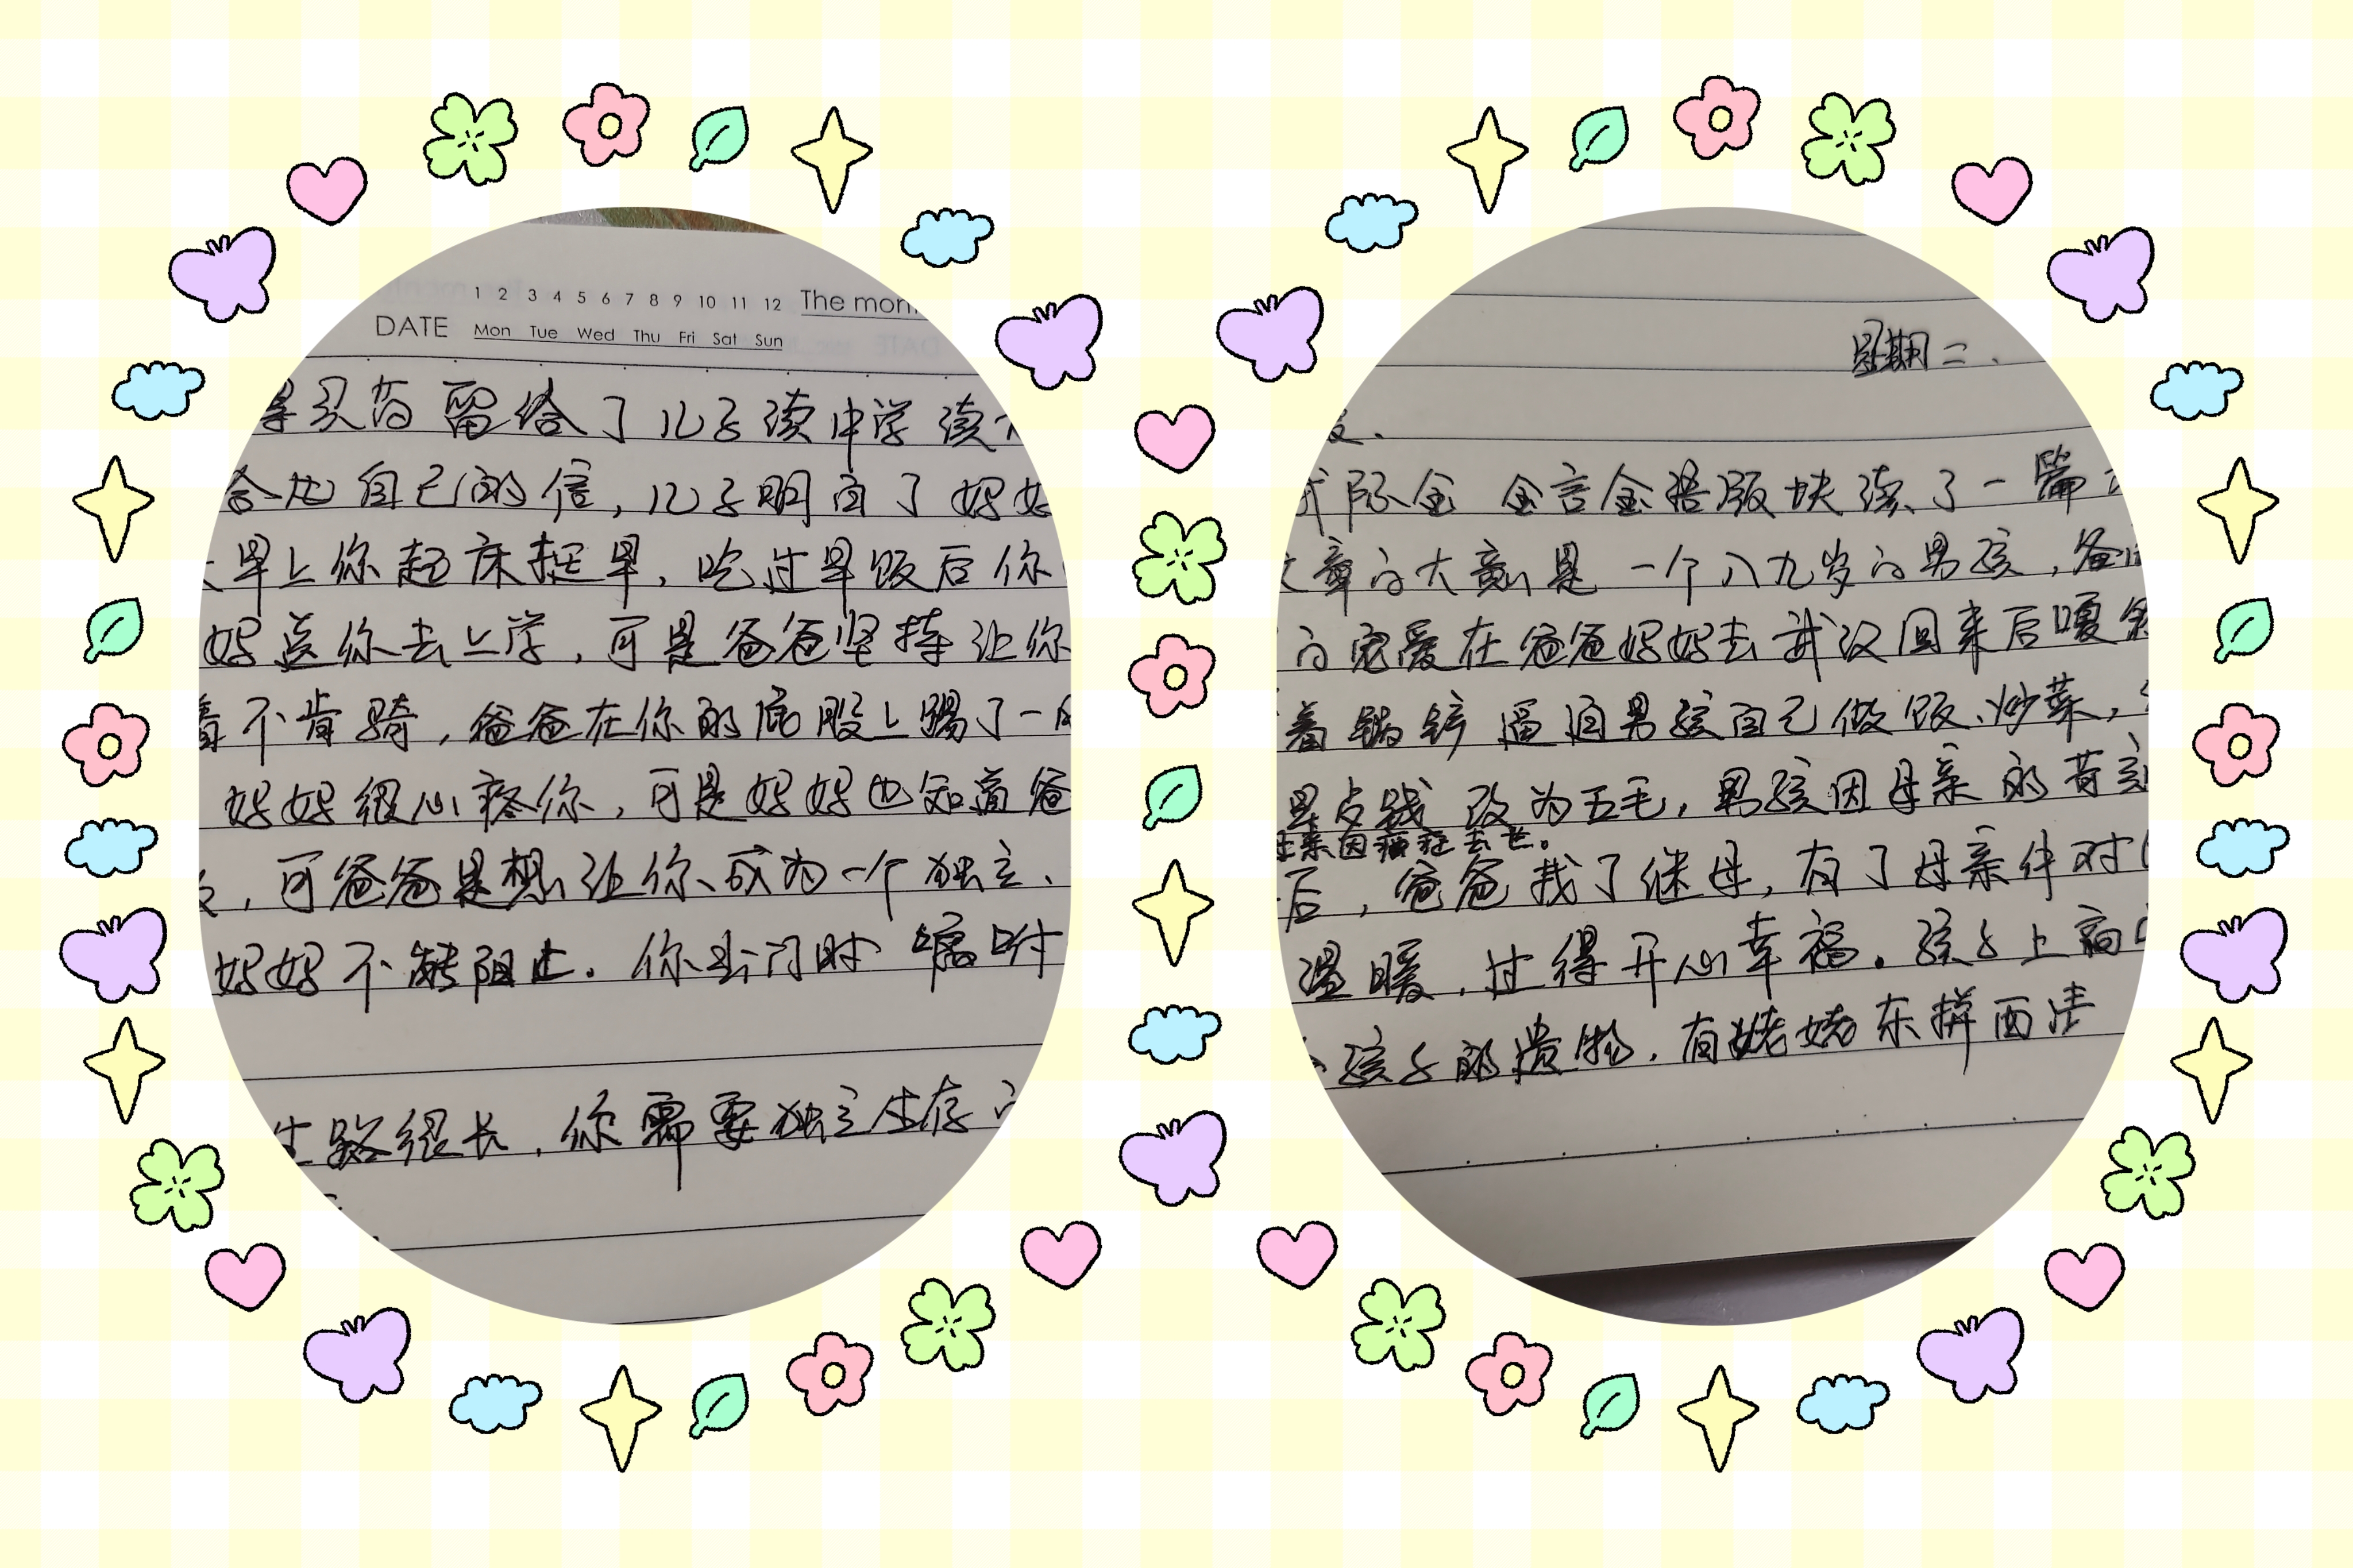 1 2 3 4 5 6 7 8 9 10 11 12 The mon
DATE Mon Tue Wed Thu Fri Sat Sun
买药留给了儿子读中学读
自己的信，儿子明白了妈妈
早上你起床挺早，吃过早饭后你
妈送你去上学，可是爸爸坚持让你
着不肯骑，爸爸在你的屁股上踢了一
妈妈很心疼你，可是妈妈也知道爸
，可爸爸是想让你成为一个独立、
妈妈不能阻止。你出门时嘱咐
生路很长，你需要独立生存
星期二.
金言金语版块读了一篇
文章的大意是一个八九岁的男孩，爸
的宠爱在爸爸妈妈去武汉回来后嘎
着锅铲逼迫男孩自己做饭、炒菜，
早点钱改为五毛，男孩因母亲的苛刻
母亲因癌症去世。
后，爸爸找了继母，有了母亲件对
温暖，过得开心幸福。孩子上高
孩子的遗物，有姥姥东拼西凑